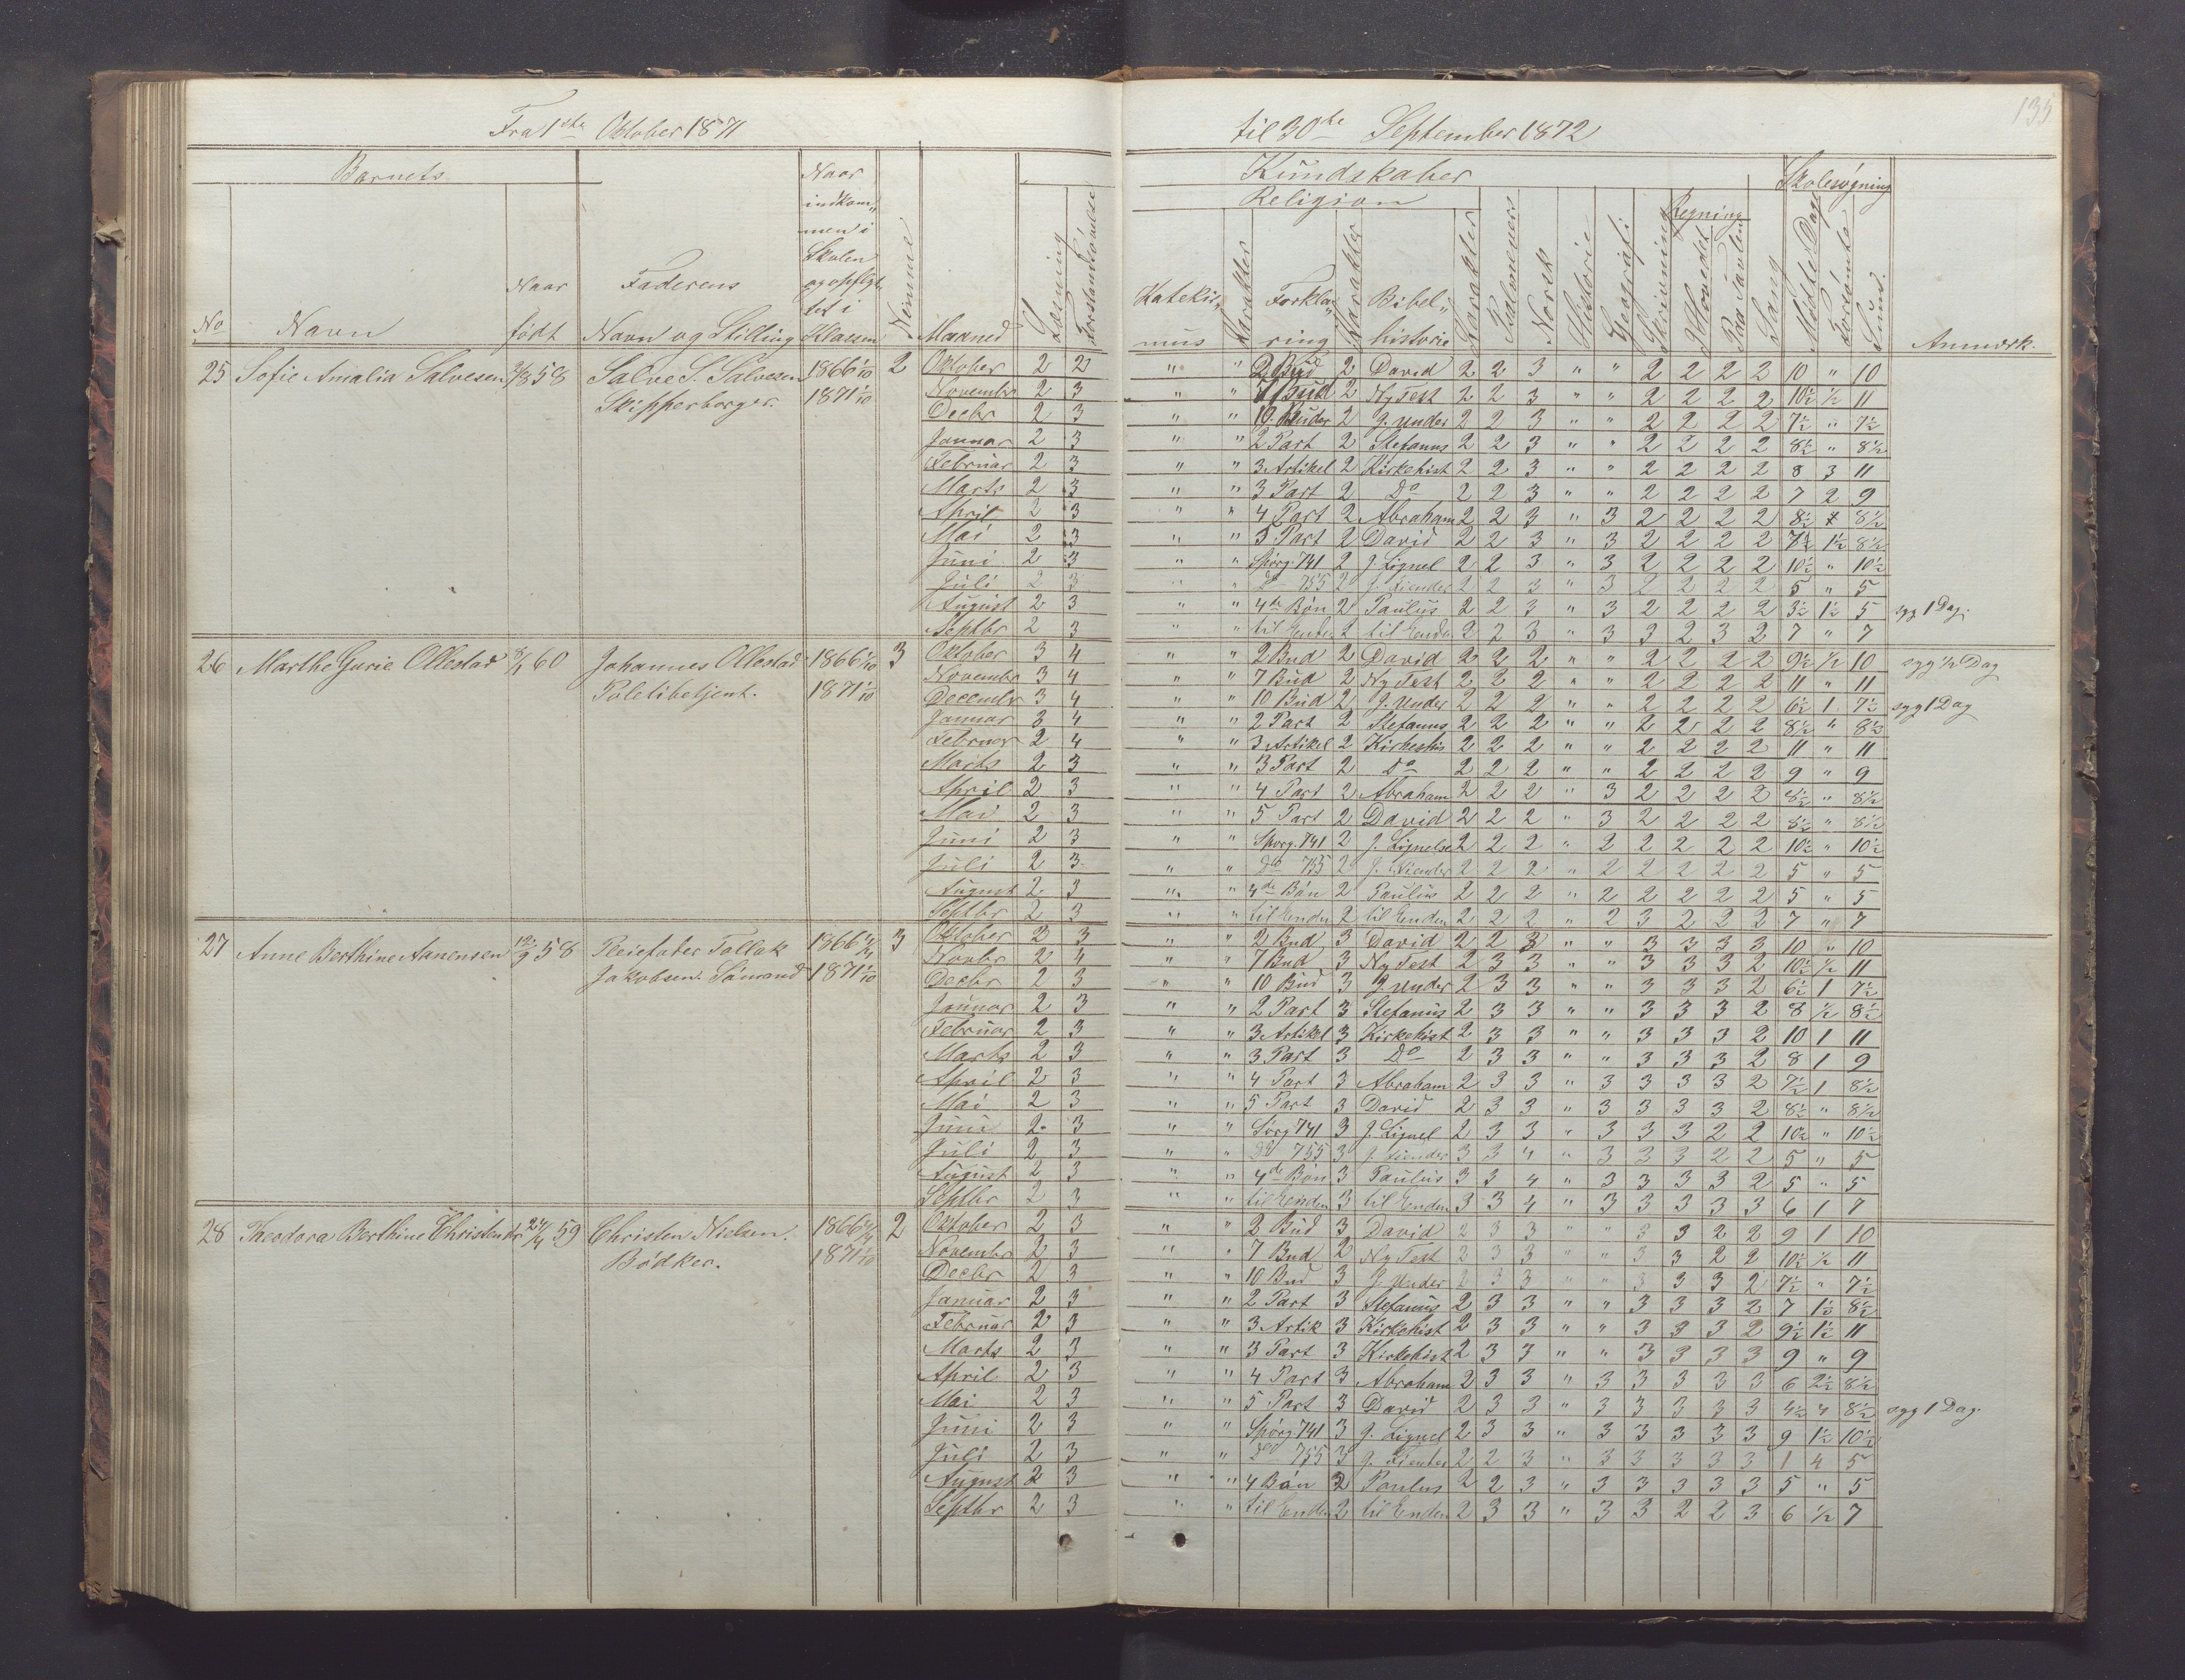 135
Fra 1ste Oktober 1871 til 30te September 1872
Barnets Naar indkommen i Skolen og opflyttet i Klassen Kundskaber Skolesøgning
Religion Regning
No Navn Naar født Faderens Navn og Stilling Nemme Maaned Læsning Forstandsøvelse Katekismus Karakter Forklaring Karakter Bibelhistorie Karakter Psalmevers Norsk Historie Geografi Skrivning I Hovedet Paa Tavlen Sang Mødte Dage Forsømte Sum. Anmærk.
25 Sofie Amalia Salvesen 2/8 58 Salve S. Salvesen 1866 1/10 2 Oktober 2 2 " " 2 Bud 2 David 2 2 3 " " 2 2 2 2 10 " 10
Skipperborger. 1871 1/10 Novembr 2 3 " " 7 Bud 2 Ny Test 2 2 3 " " 2 2 2 2 10½ ½ 11
Decbr 2 3 " " 10. Bud 2 J. under 2 2 3 " " 2 2 2 2 7½ " 7½
Januar 2 3 " " 2 Part 2 Stefanus 2 2 3 " " 2 2 2 2 8½ " 8½
Februar 2 3 " " 3 Artikel 2 Kirkehist 2 2 3 " " 2 2 2 2 8 3 11
Marts 2 3 " " 3 Part 2 Do 2 2 3 " " 2 2 2 2 7 2 9
April 2 3 " " 4 Part 2 Abraham 2 2 3 " 3 2 2 2 2 8½ " 8½
Mai 2 3 " " 5 Part 2 David 2 2 3 " 3 2 2 2 2 7 1½ 8½
Juni 2 3 " " Spørg 741 2 J. Lignel 2 2 3 " 3 2 2 2 2 10½ " 10½
Juli 2 3 " " Do 755 2 J. Fiender 2 2 3 " 3 2 2 2 2 5 " 5
August 2 3 " " 4de Bøn 2 Paulus 2 2 3 " 3 2 2 2 2 3½ 1½ 5 syg 1 Dag.
Septbr 2 3 " " til Enden 2 til Enden 2 2 3 " 3 3 2 3 2 7 " 7
26 Marthe Gurie Ollestad 8/1 60 Johannes Ollestad 1866 1/10 3 Oktober 3 4 " " 2 Bud 2 David 2 2 2 " " 2 2 2 2 9½ ½ 10 syg ½ Dag
Politibetjent. 1871 1/10 Novembr 3 4 " " 7 Bud 2 Ny Test 2 2 2 " " 2 2 2 2 11 " 11
Decembr 3 4 " " 10 Bud 2 J. under 2 2 2 " " 2 2 2 2 6½ 1 7½ syg 1 Dag
Januar 3 4 " " 2 Part 2 Stefanus 2 2 2 " " 2 2 2 2 8½ " 8½
Februar 2 4 " " 3 Artikel 2 Kirkehis 2 2 2 " " 2 2 2 2 11 " 11
Marts 2 3 " " 3 Part 2 Do 2 2 2 " " 2 2 2 2 9 " 9
April 2 3 " " 4 Part 2 Abraham 2 2 2 " 3 2 2 2 2 8½ " 8½
Mai 2 3 " " 5 Part 2 David 2 2 2 " 3 2 2 2 2 8½ " 8½
Juni 2 3 " " Spørg. 741 2 J. Lignelse 2 2 2 " 2 2 2 2 2 10½ " 10½
Juli 2 3 " " Do 755 2 J. Fiender 2 2 2 " 2 2 2 2 2 5 " 5
August 2 3 " " 4de Bøn 2 Paulus 2 2 2 " 2 2 2 2 2 5 " 5
Septbr 2 3 " " til Enden 2 til Enden 2 2 2 " 2 3 2 2 2 7 " 7
27 Anne Berthine Aanensen 12/9 58 Pleiefader Tallak 1866 3 Oktober 2 3 " " 2 Bud 3 David 2 2 3 " " 3 3 3 3 10 " 10
Jakobsen. Sømand 1871 1/10 Novbr 2 4 " " 7 Bud 3 Ny Test 2 3 3 " " 3 3 3 2 10½ ½ 11
Decbr 2 3 " " 10 Bud 3 J. under 2 3 3 " " 3 3 3 2 6½ 1 7½
Januar 2 3 " " 2 Part 3 Stefanus 2 3 3 " " 3 3 3 2 8 ½ 8½
Februar 2 3 " " 3 Artikel 3 Kirkehist 2 3 3 " " 3 3 3 2 10 1 11
Marts 2 3 " " 3 Part 3 Do 2 3 3 " " 3 3 3 2 8 1 9
April 2 3 " " 4 Part 3 Abraham 2 3 3 " 3 3 3 3 2 7½ 1 8½
Mai 2 3 " " 5 Part 3 David 2 3 3 " 3 3 3 3 2 8½ " 8½
Juni 2 3 " " Sørg 741 3 J. Lignel 2 3 3 " 3 3 3 2 2 10½ " 10½
Juli 2 3 " " Do 755 3 J. Fiender 3 3 4 " 3 3 3 2 2 5 " 5
August 2 3 " " 4de Bøn 3 Paulus 3 3 4 " 3 3 3 3 2 5 " 5
Septbr 2 3 " " til Enden 3 til Enden 3 3 4 " 3 3 3 3 3 6 1 7
28 Theodora Berthine Christendr 24/4 59 Christen Nielsen. 1866 2 Oktober 2 3 " " 2 Bud 3 David 2 3 3 " " 3 3 2 2 9 1 10
Bødker. 1871 1/10 Novembr 2 3 " " 7 Bud 2 Ny Test 2 3 3 " " 3 3 2 2 10½ ½ 11
Decbr 2 3 " " 10 Bud 3 J. under 2 3 3 " " 3 3 3 2 7½ " 7½
Januar 2 3 " " 2 Part 3 Stefanus 2 3 3 " " 3 3 3 2 7 1½ 8½
Februar 2 3 " " 3 Artik 3 Kirkehist 2 3 3 " " 3 3 3 2 9½ 1½ 11
Marts 2 3 " " 3 Part 3 Kirkehist 2 3 3 " " 3 3 3 3 9 " 9
April 2 3 " " 4 Part 3 Abraham 2 3 3 " 3 3 3 3 3 6 2½ 8½
Mai 2 3 " " 5 Part 3 David 2 3 3 " 3 3 3 3 3 4½ 4 8½ syg 1 Dag.
Juni 2 3 " " Spørg 741 3 J. Lignel 2 3 3 " 3 3 3 3 3 9 1½ 10½
Juli 2 3 " " Do 755 3 J. Fiender 2 2 3 " 3 3 3 3 3 1 4 5
August 2 3 " " 4 Bøn 2 Paulus 2 2 3 " 3 3 3 3 3 5 " 5
Septbr 2 3 " " til Enden 2 til Enden 2 3 3 " 3 3 2 2 3 6 ½ 7